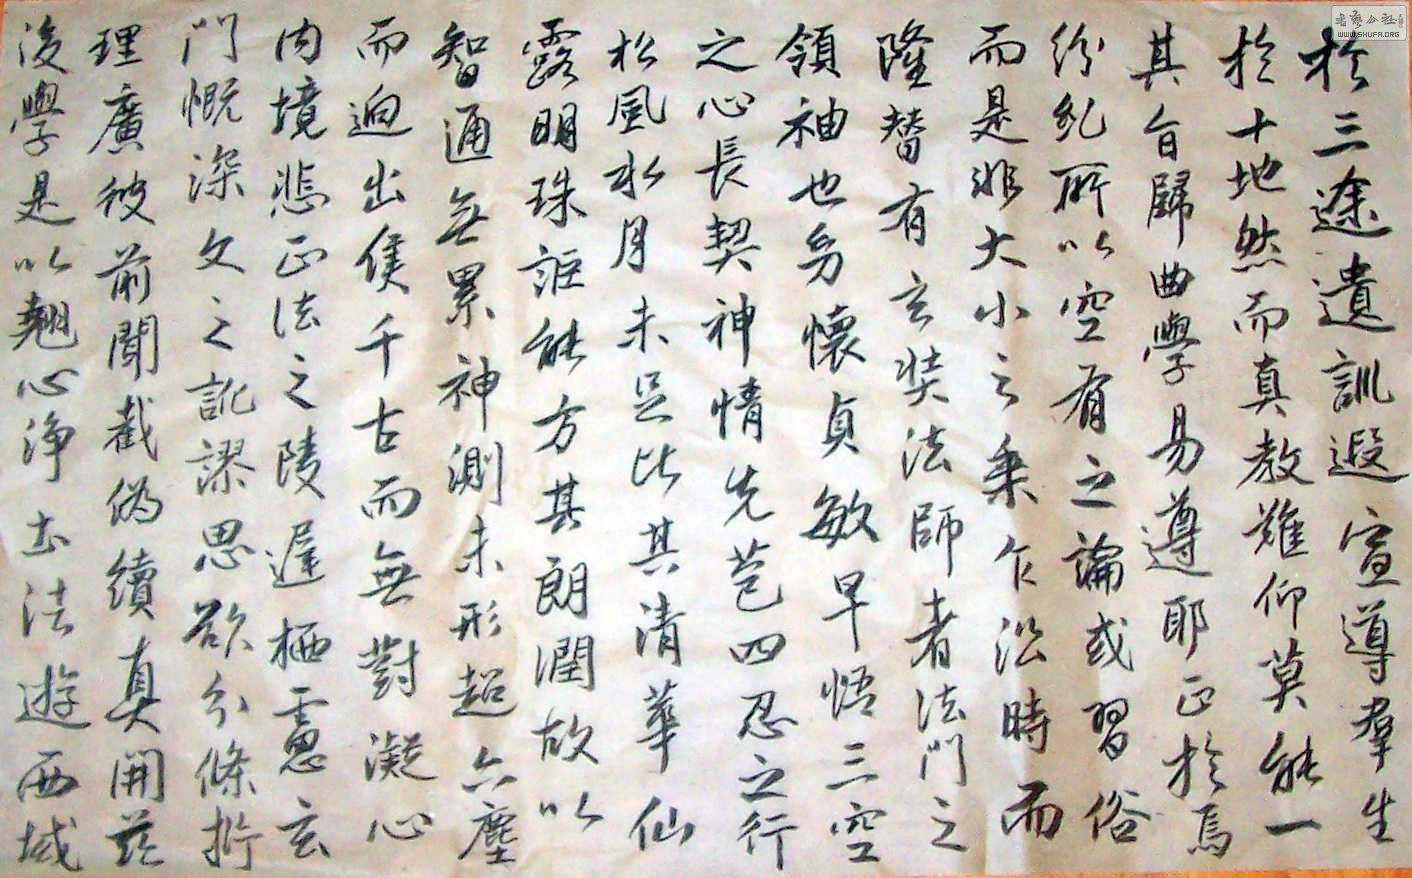 於三途遺訓遐宣導羣生
於十地然而真教難仰莫能一
其旨歸曲學易遵耶正於焉
紛糺所以空有之論或習俗
而是非大小之乘乍沿時而
隆替有玄奘法師者法門之
領袖也㓜懷貞敏早悟三空
之心長契神情先苞四忍之行
松風水月未足比其清華仙
露明珠詎能方其朗潤故以
智通無累神測未形超六塵
而迥出隻千古而無對凝心
内境悲正法之陵遲栖慮玄
門慨深文之訛謬思欲分條析
理廣彼前聞截偽續真開茲
後學是以翹心淨土法遊西域
书艺公社
WWW.SHUFA.ORG